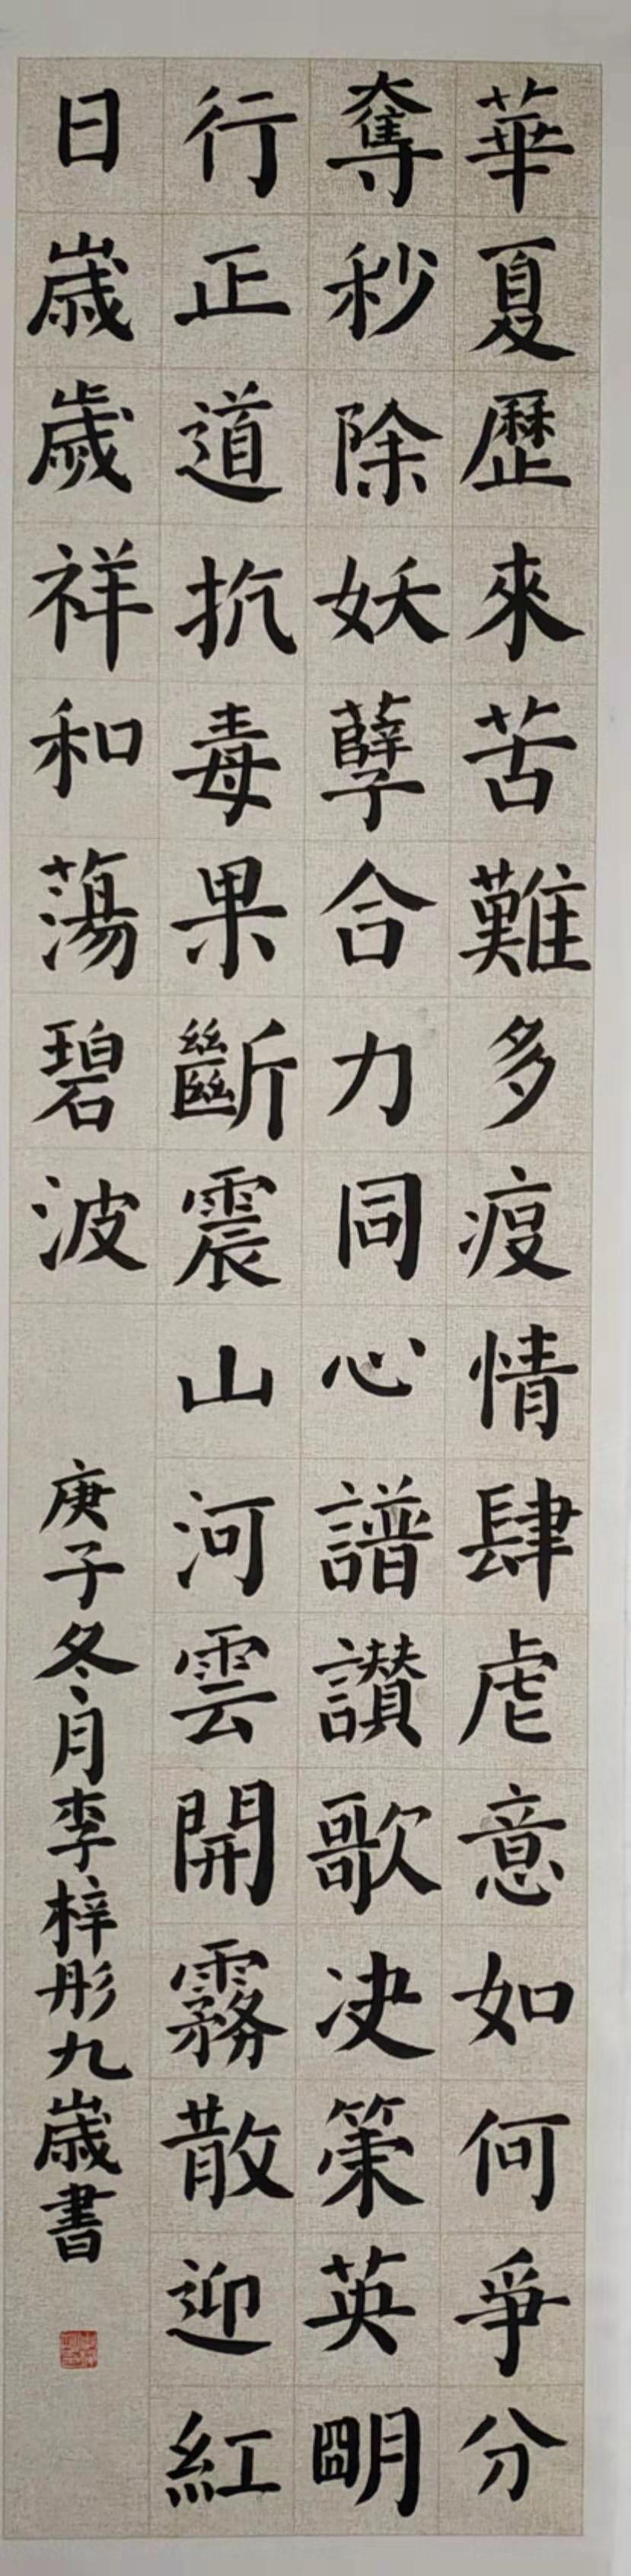 華夏歷來苦難多疫情肆虐意如何爭分
奪秒除妖孽合力同心譜讃歌決策英明
行正道抗毒果斷震山河雲開霧散迎紅
日歲歲祥和蕩碧波
庚子冬月李梓彤九歲書